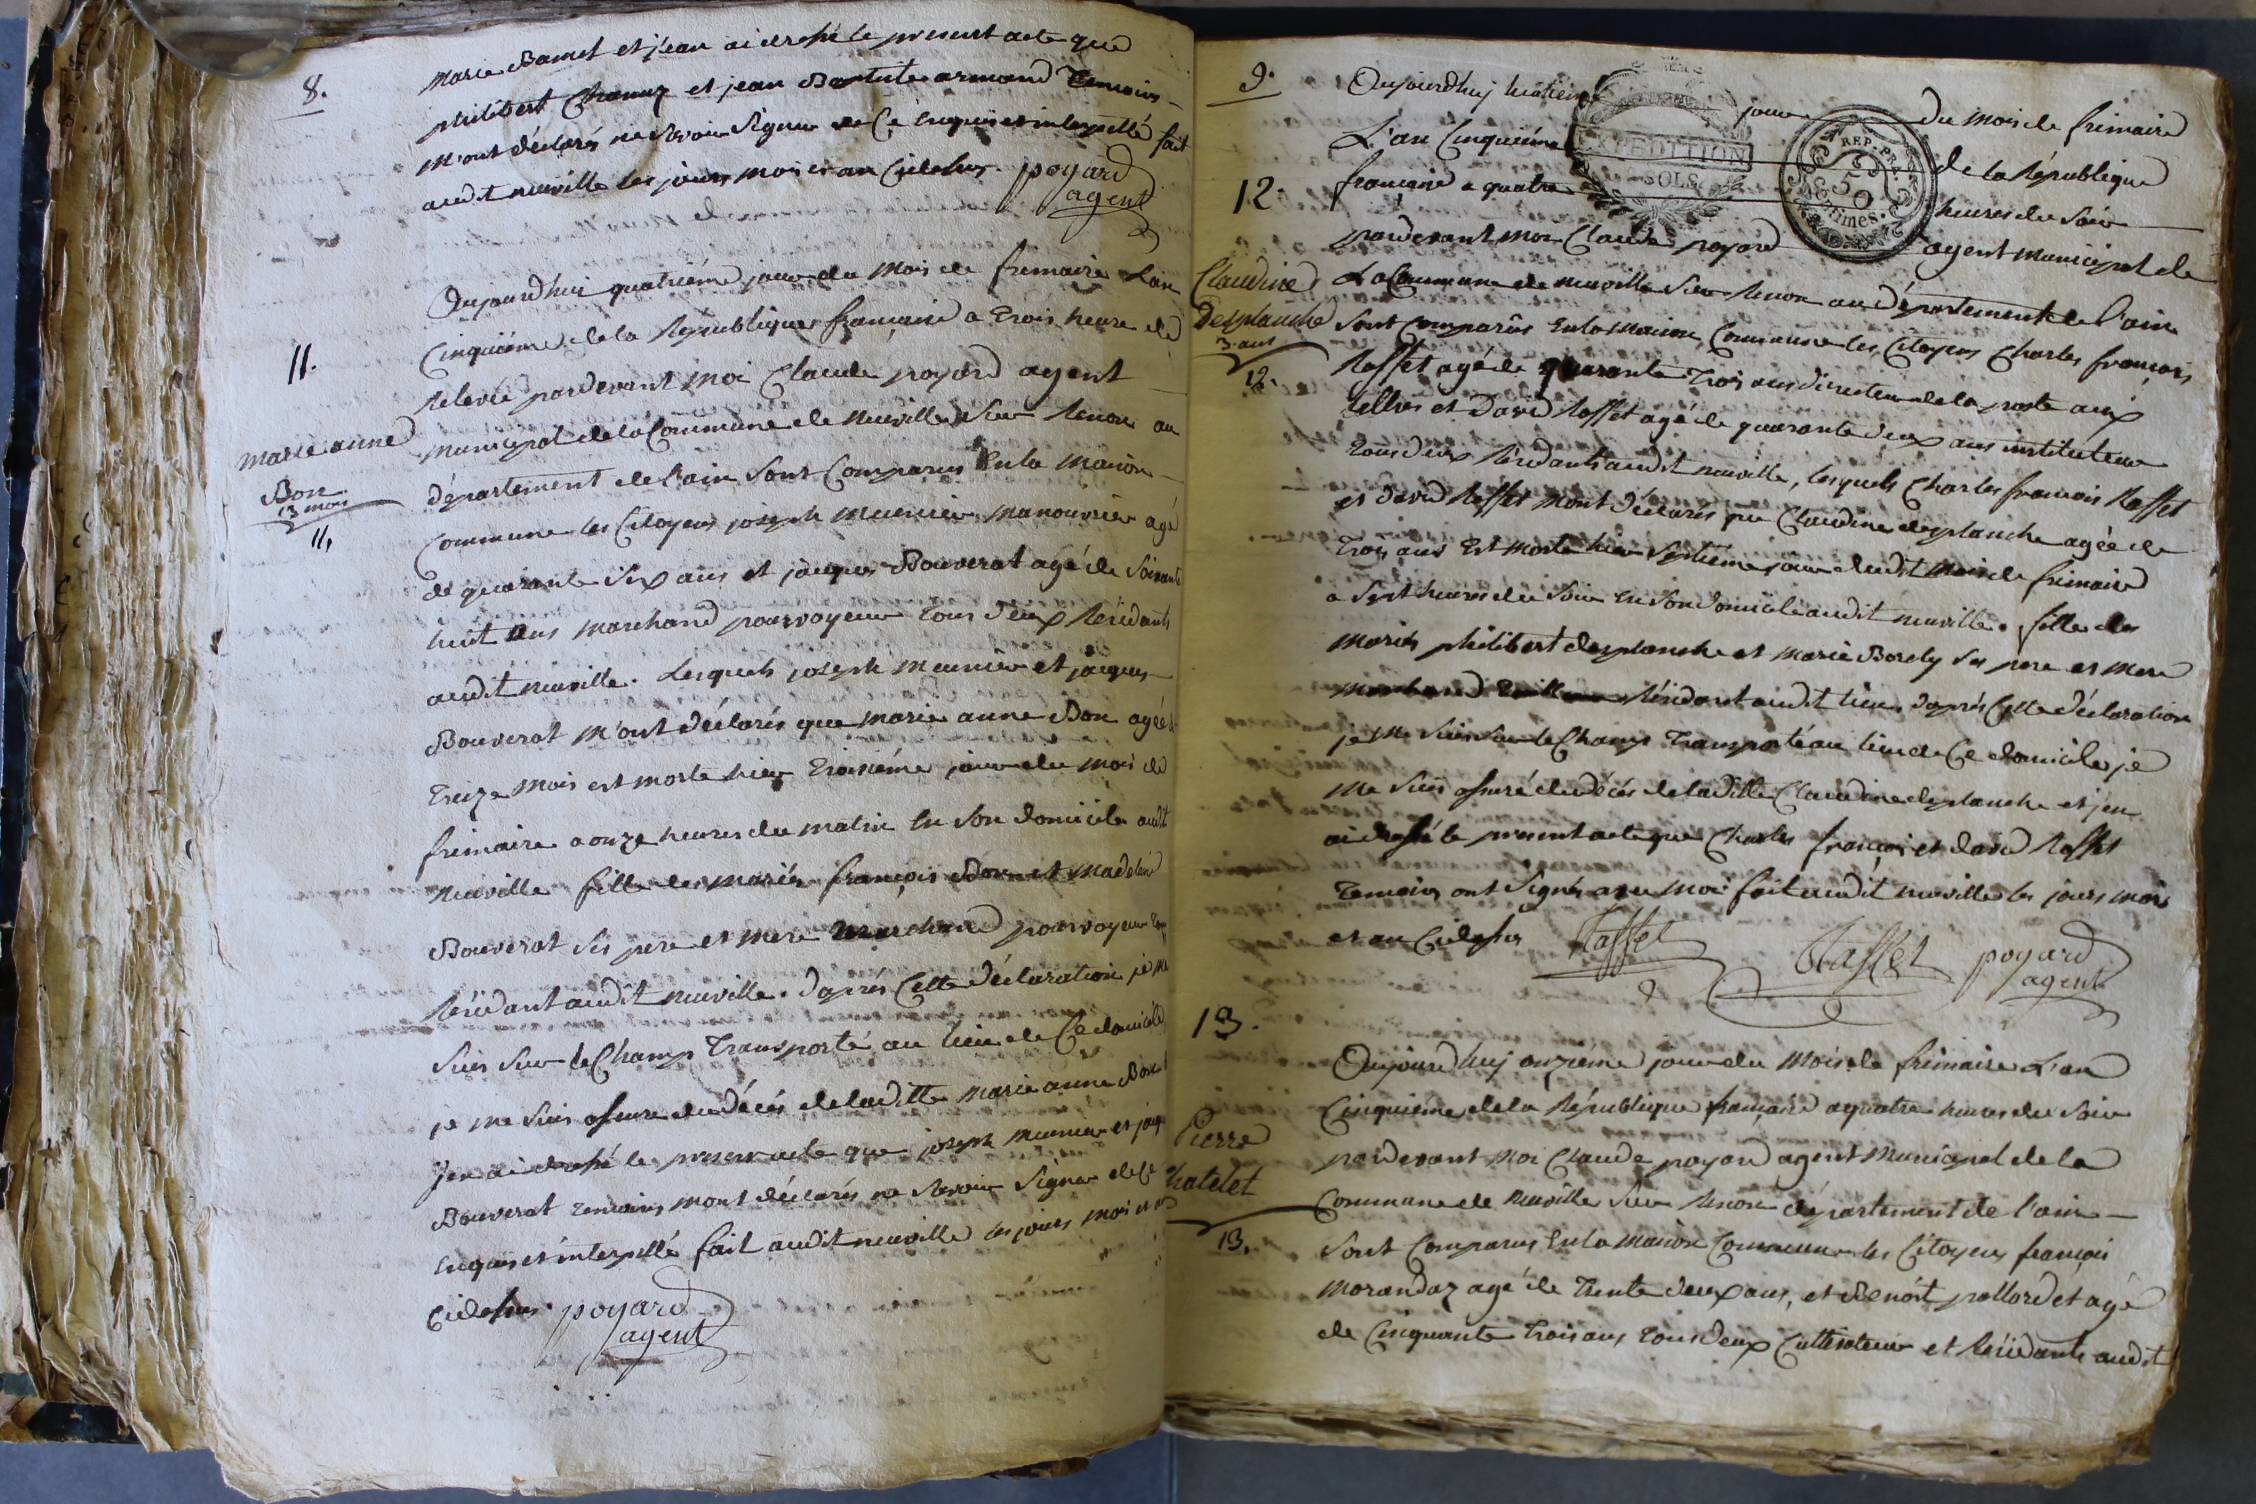 8.
marie Bamet et j'en ai dressé le present acte que
philibert Chanuz et jean Baptiste armand Temoins
m'ont déclarés ne Savoir Signer de Ce Enquis et interpellé fait
audit neuville les jours mois et an Cidessus. poyard
agent
11.
marie anne
Bon
13 mois
11,
Aujourdhui quatriéme jour du Mois de frimaire L'an
Cinquiéme de la Republique française a Trois heure de
Relevée pardevant moi Claude poyard agent
municipal de la Commune de Neuville Sur Renon au
département de l'ain Sont Comparus En la Maison
Commune les Citoyens joseph Meunier manouvrier agé
de quarante Six ans et jacques Bouverat agé de Soixante
huit ans marchand pourvoyeur Tous deux Résidants
audit neuville. Lesquels joseph Meunier et jacques
Bouverat M'ont déclarés que marie anne Bon agée d
Treize Mois est morte hier Troisiéme jour du mois de
frimaire a onze heures du matin En Son domicile audit
Neuville fille des mariés françois Bon et Madelein
Bouverat Ses pere et mere marchand pourvoyeur
Résidant audit neuville. daprés Cette déclaration je me
Suis Sur le Champ Transporté au lieu de Ce domicile
je me Suis assure du décés de laditte marie anne Bon
j'en ai dressé le present acte que joseph Meunier et jaqu
Bouverat Temoins mont déclarés ne Savoir Signer de Ce
Enquis et interpellé fait audit neuville les jours mois et an
Cidessus. poyard
agent
9.
12.
Claudine
Desplanche
3 ans
12.
Aujourdhuy huitiéme jour du mois de frimaire
L'an Cinquiéme de la République
française a quatre heures du Soir
pardevant moi Claude poyard agent municipal de
EXPEDITION
SOLS
REP. FRA.
50
Centimes.
La Commune de neuville Sur Renon au département de l'ain
Sont Comparûs En la Maison Commune les Citoyens Charles françois
Raffet agé de quarante Trois ans directeur de la poste aux
lettres et David Raffet agé de quarante deux ans instituteur
Tous deux Résidants audit neuville, lesquels Charles francois Raffet
et david Raffet Mont déclarés que Claudine desplanche agée de
Trois ans Est Morte hier Septieme jour dudit Mois de frimaire
a Sept heures du Soir En Son domicile audit neuville. fille des
Mariés philibert desplanche et Marie Borely Ses pere et Mere
Marchand Résidant audit lieu, daprés Cette déclaration
je Me Suis Sur le Champ Transporté au lieu de Ce domicile je
Me Suis assuré du décés de laditte Claudine desplanche et jen
ai dressé le present acte que Charles françois et david Raffet
Temoins ont Signés avec moi fait audit neuville les jours mois
et an Cidessus Raffet Raffet poyard
agent
13.
Pierre
Chatelet
13,
Aujourdhuy onziéme jour du Mois de frimaire L'an
Cinquiéme de la République française a quatre heures du Soir
pardevant Moi Claude poyard agent Municipal de la
Commune de Neuville Sur Renon département de l'ain
Sont Comparus En la Maison Commune les Citoyens françois
Morandaz agé de Trente deux ans, et Benoit pallordet agé
de Cinquante Trois ans Tous deux Cultivateur et Résidants audit